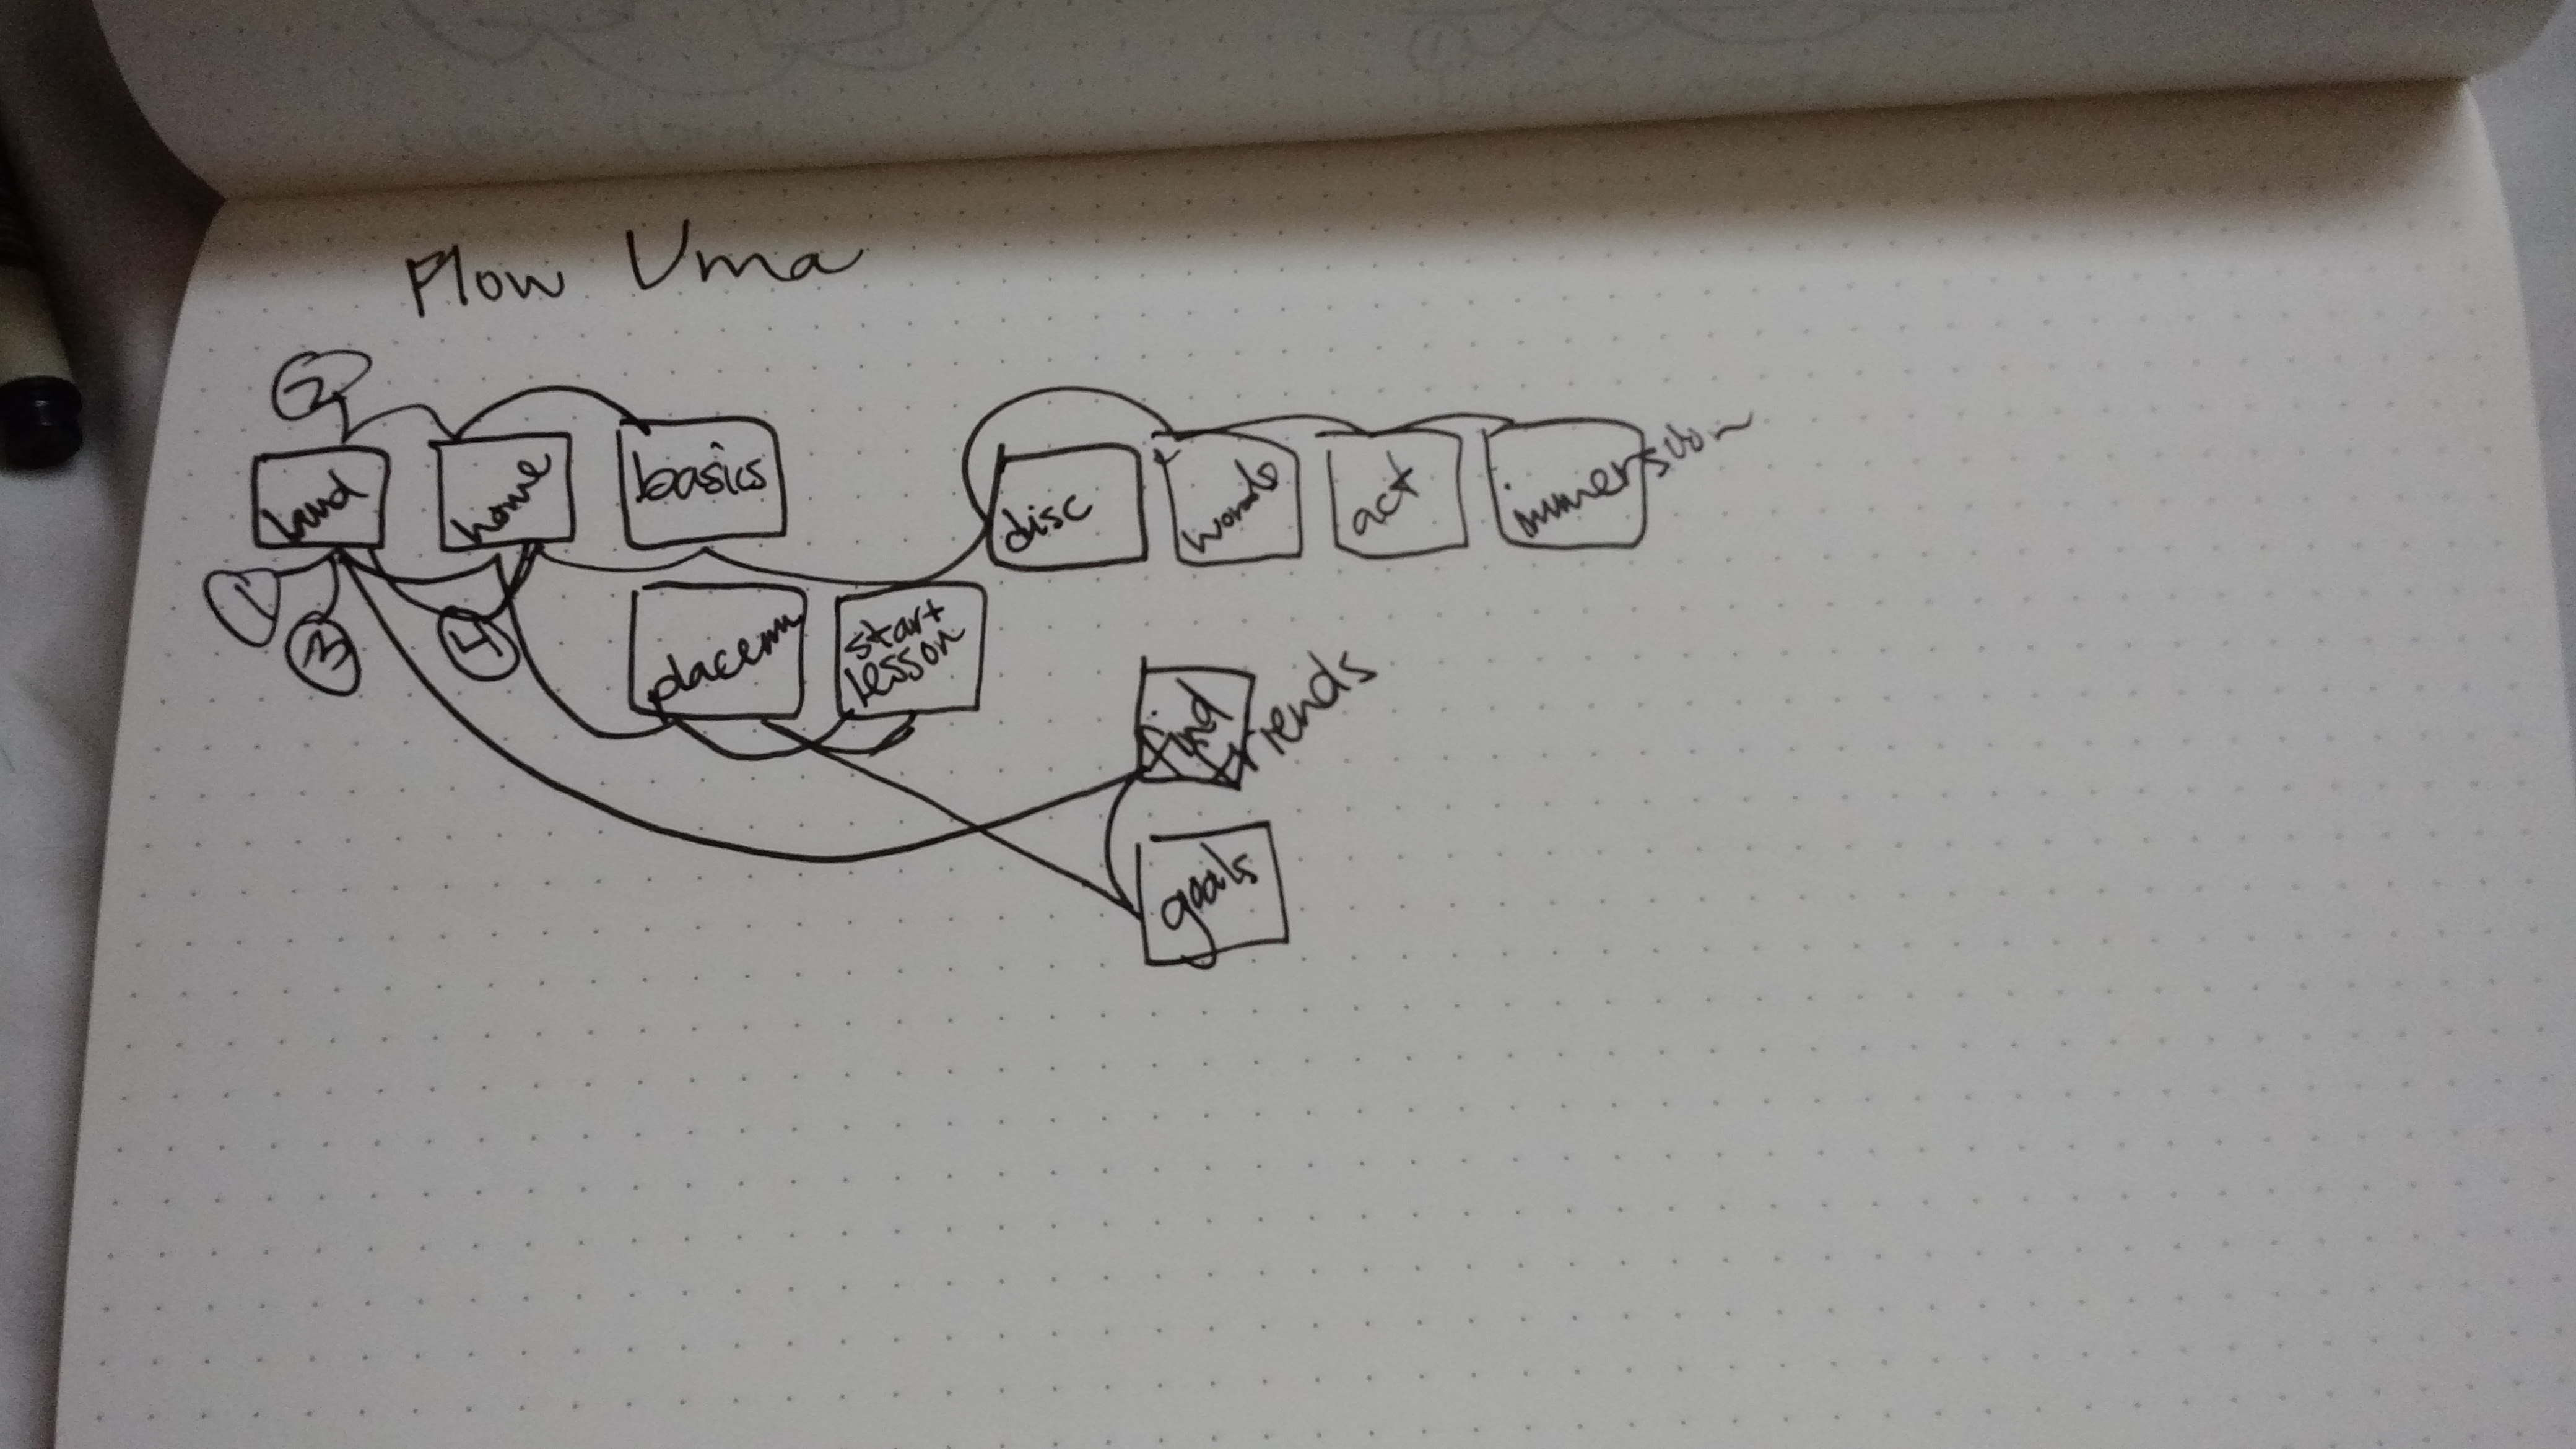 Flow Uma
2
land
home
basics
disc
words
act
immersion
1
3
4
placem
start
lesson
find
friends
goals